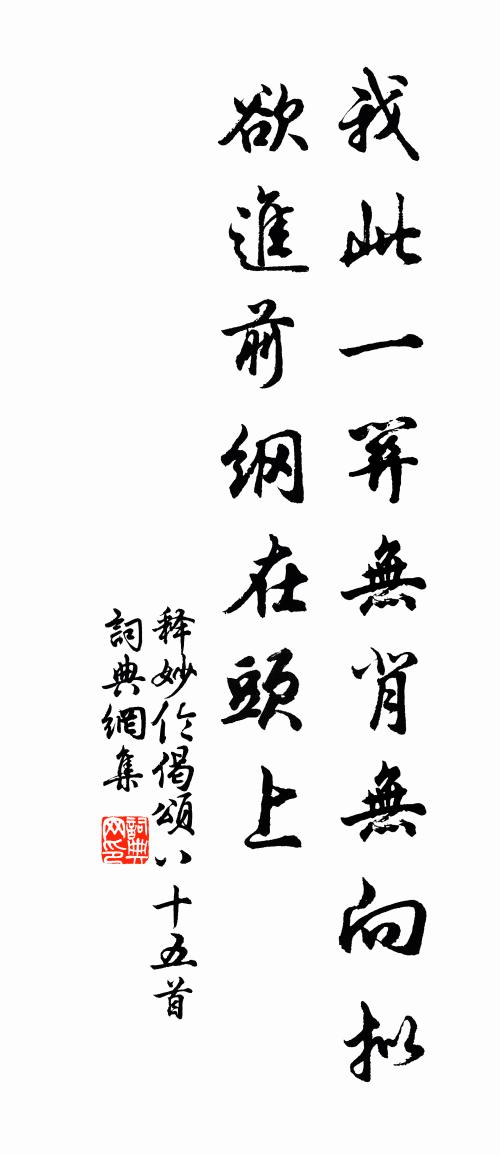 我此一無背無向拟
欲進前綱在頭上
释妙伦偈頌八十五首
詞典網集
詞典网印